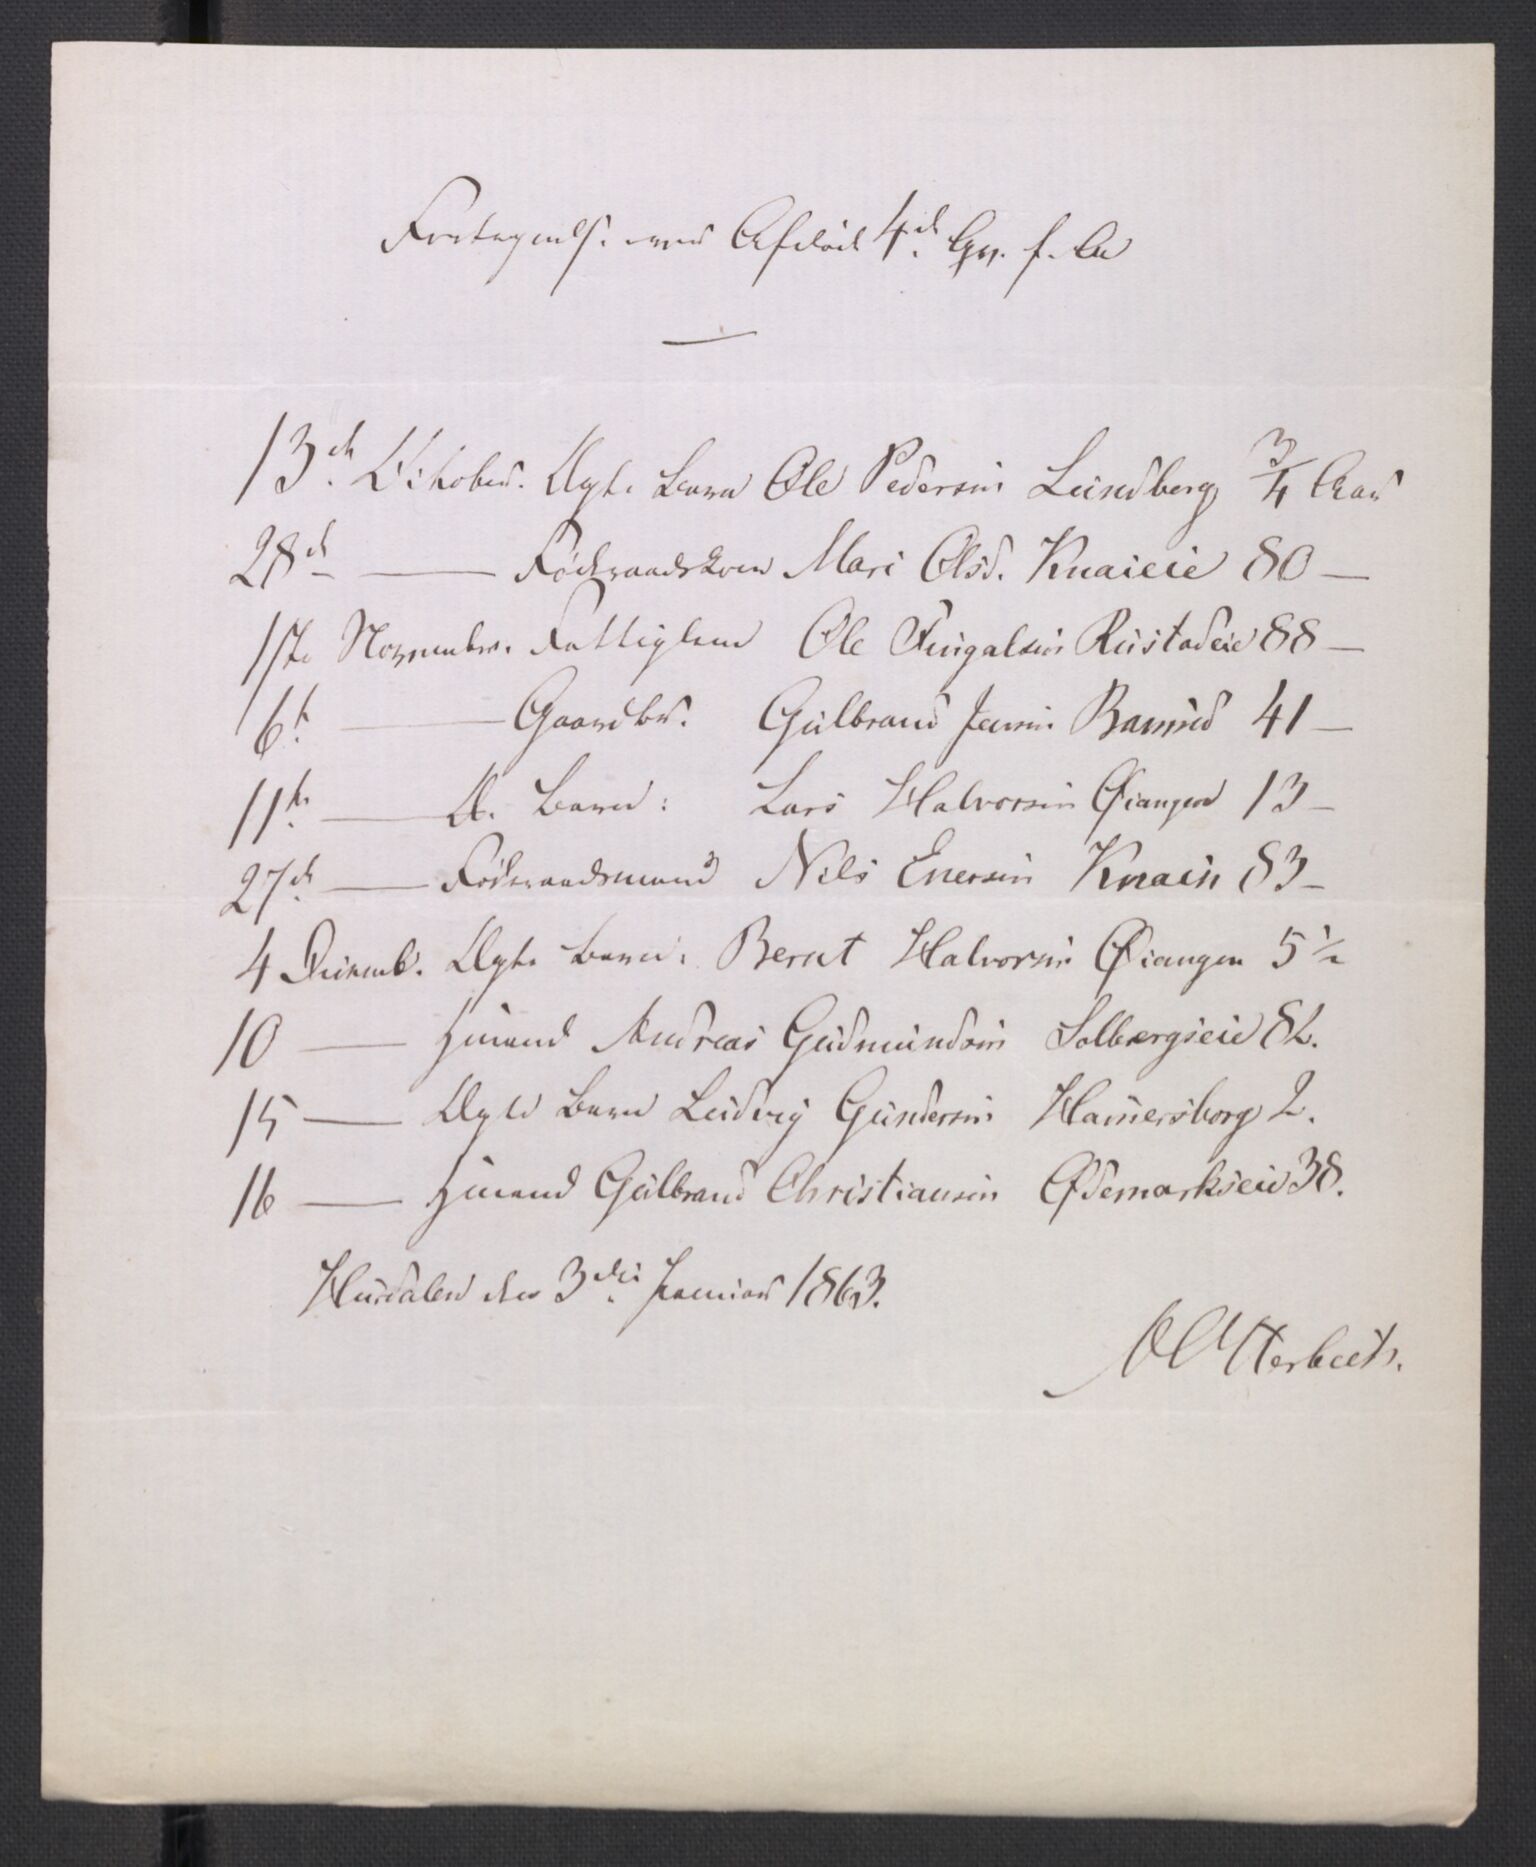 Fortegnelse over Afdöde 4d Qv. f. A
13de October. Ægte Barn Ole Pedersen Lundberg 3/4 Aar
28de — Föderaadskone Mari Olsd. Knaieie 80 —
1ste November. Fattiglem Ole Fingalsen Rustadeie 88 —
6te — Gaardbr. Gulbrand Jensen 41 —
11te — Æ. Barn: Lars Halvorsen Øiangen 13 —
27de — Föderaadsmand Nils Enersen Knain 83 —
4 Decemb. Ægte Barn: Bernt Halvorsen Øiangen 5 1/2
10 — Huusmd Andreas Gudmundsen Solbergseie 82.
15 — Ægte Barn Ludvig Gundersen Hamersborg 2.
16 — Huusmd Gulbrand Christiansen Ødemarkseie 38.
Hurdalen den 3die Januar 1863.